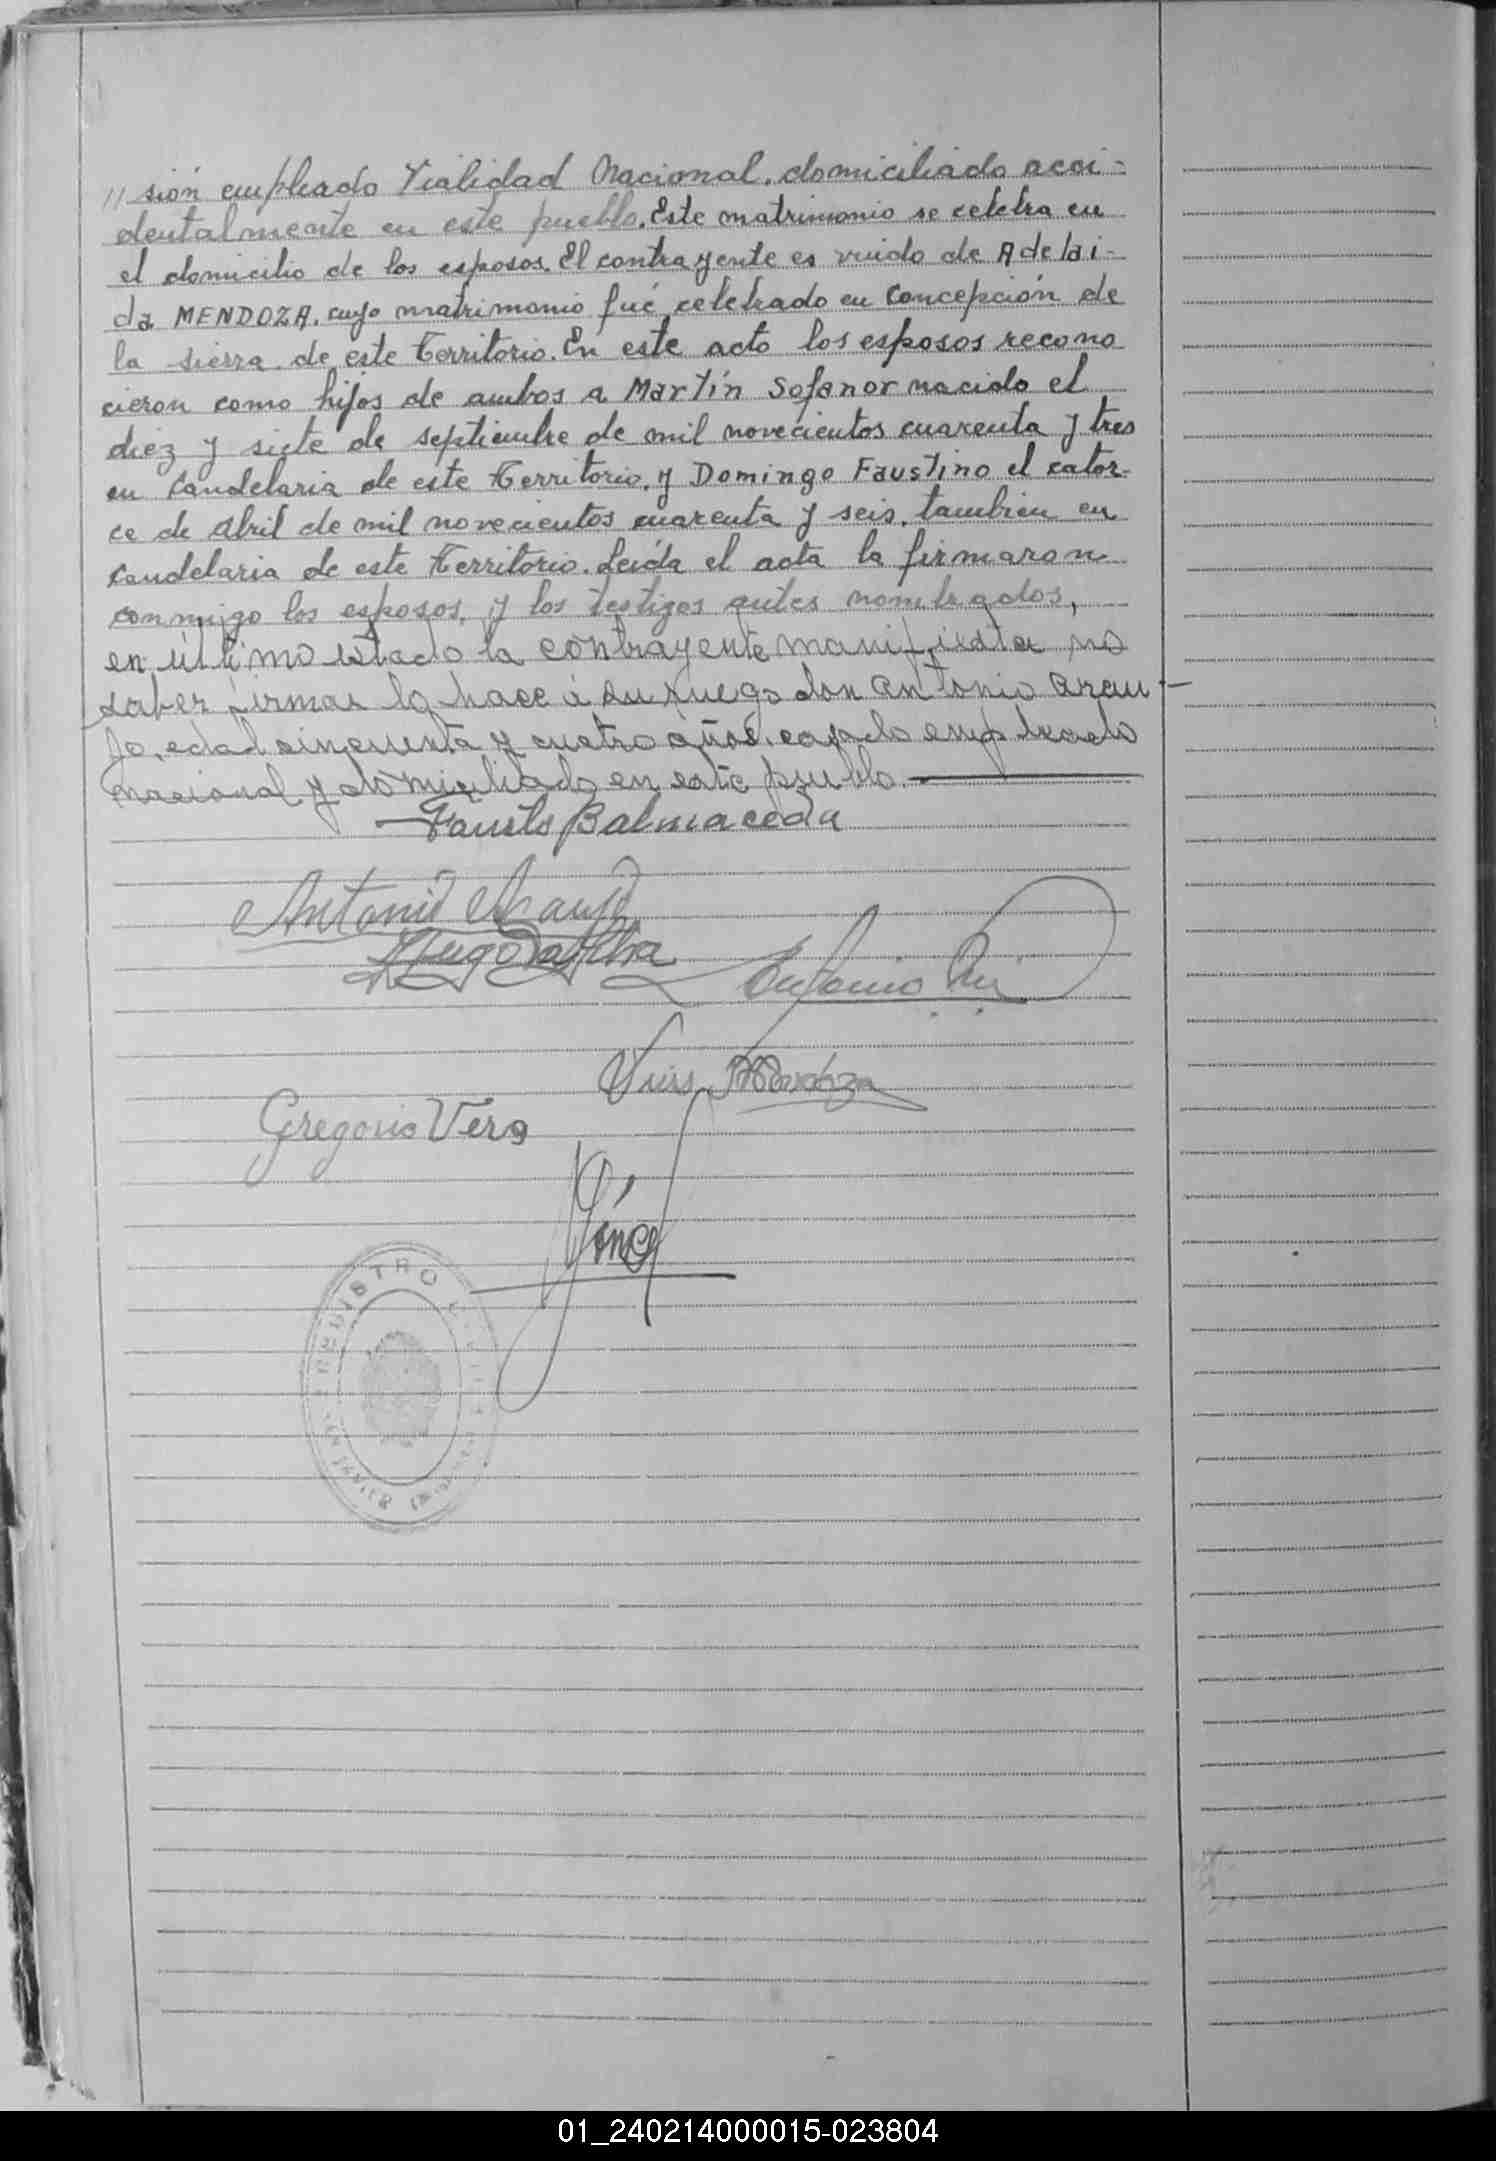 // sión empleado Vialidad Nacional, domiciliado acci-
dentalmente en este pueblo. Este matrimonio se celebra en
el domicilio de los esposos. El contrayente es viudo de Adelai-
da MENDOZA, cuyo matrimonio fué celebrado en Concepción de
la sierra de este Territorio. En este acto los esposos recono
cieron como hijos de ambos a Martín Sofanor nacido el
diez y siete de septiembre de mil novecientos cuarenta y tres
en Candelaria de este Territorio, y Domingo Faustino el cator-
ce de abril de mil novecientos cuarenta y seis, tambien en
Candelaria de este Territorio. Leída el acta la firmaron
conmigo los esposos, y los testigos antes nombrados,
en último estado la contrayente manifiesta no
saber firmar lo hace á su ruego don Antonio Arau-
jo, edad cincuenta y cuatro años, casado empleado
nacional y domiciliado en este pueblo.
Fausto Balmaceda
Antonio Araujo
Hugo
Antonio
Luis Mendoza
Gregorio Vera
REGISTRO
01_240214000015-023804